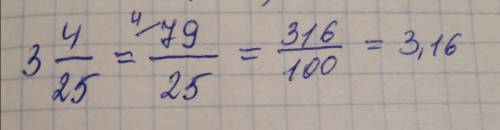 3 4/25 = ⁴79/25 = 316/100 = 3,16